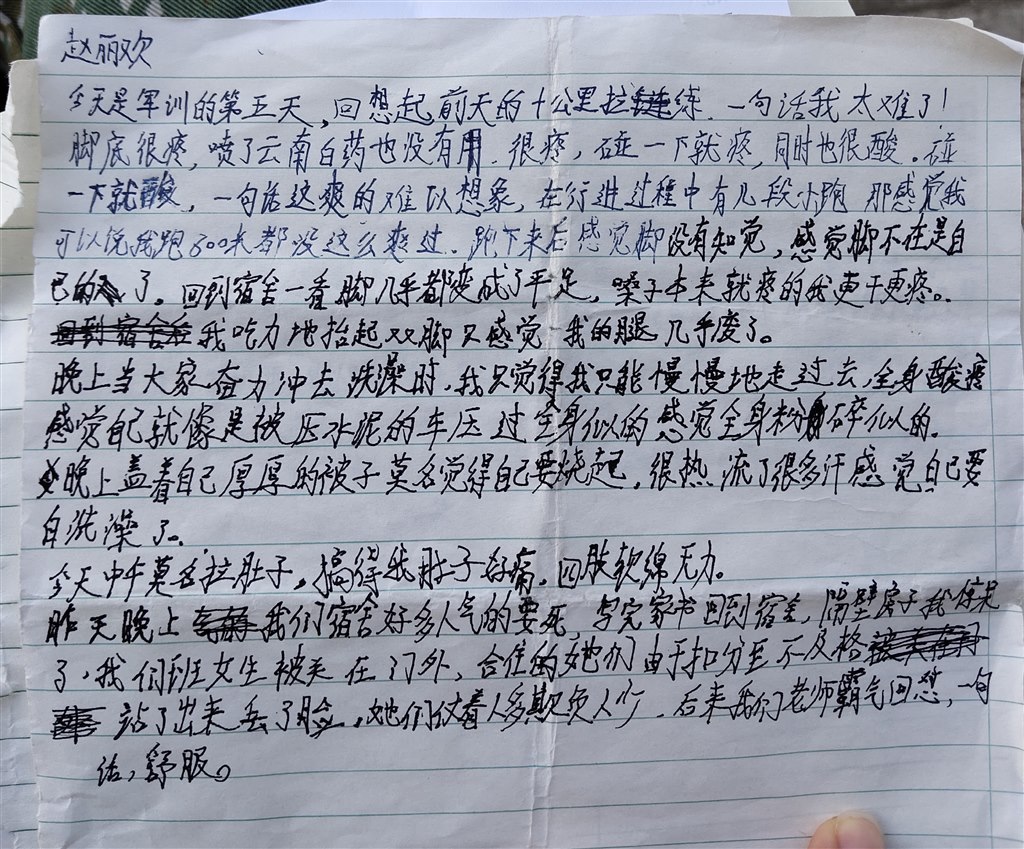 赵丽欢
今天是军训的第五天,回想起前天的十公里拉练.一句话我太难了!
脚底很疼,喷了云南白药也没有用.很疼,碰一下就疼,同时也很酸。碰
一下就酸,一句话这爽的难以想象,在行进过程中有几段小跑 那感觉我
可以说我跑800米都没这么爽过.跑下来后感觉脚没有知觉,感觉脚不在是自
己的了。回到宿舍一看脚几乎都变成了平足,嗓子本来就疼的我更干更疼。
我吃力地抬起双脚只感觉 我的腿几乎废了。
晚上当大家奋力冲去洗澡时,我只觉得我只能慢慢地走过去,全身酸疼
感觉自己就像是被压水泥的车压过全身似的感觉全身粉碎似的.
晚上盖着自己厚厚的被子莫名觉得自己要烧起,很热 流了很多汗感觉自己要
白洗澡了。
今天中午莫名拉肚子,搞得我肚子好痛,四肢软绵无力。
昨天晚上我们宿舍好多人气的要死,写完家书回到宿舍,隔壁房子我
了,我们班女生被关在门外,合住的她们由于扣分至不及格
站了出来丢了脸,她们仗着人多欺负人少.后来我们老师霸气回怼,一句
话,舒服。